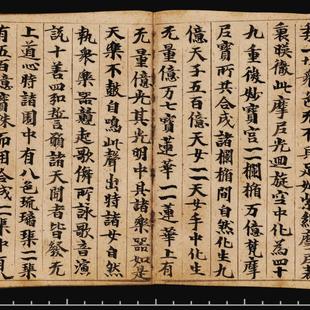 一切衆色无不具足如紫紺摩
裏暎徹此摩尼光迴旋空中化為四十
九重微妙寶宮一一欄楯万億梵摩
尼寶所共合成諸欄楯間自然化生九
億天子五百億天女一一天子手中化生
无量億万七寶蓮華一一蓮華上有
无量億光其光明中具諸樂器如是
天樂不鼓自鳴此聲出時諸女自然
執衆樂器競起歌儛所詠歌音演
說十善四弘誓願諸天聞者皆發无
上道心時諸園中有八色琉璃渠一一渠
有五百億寶珠而用合成一一渠中有